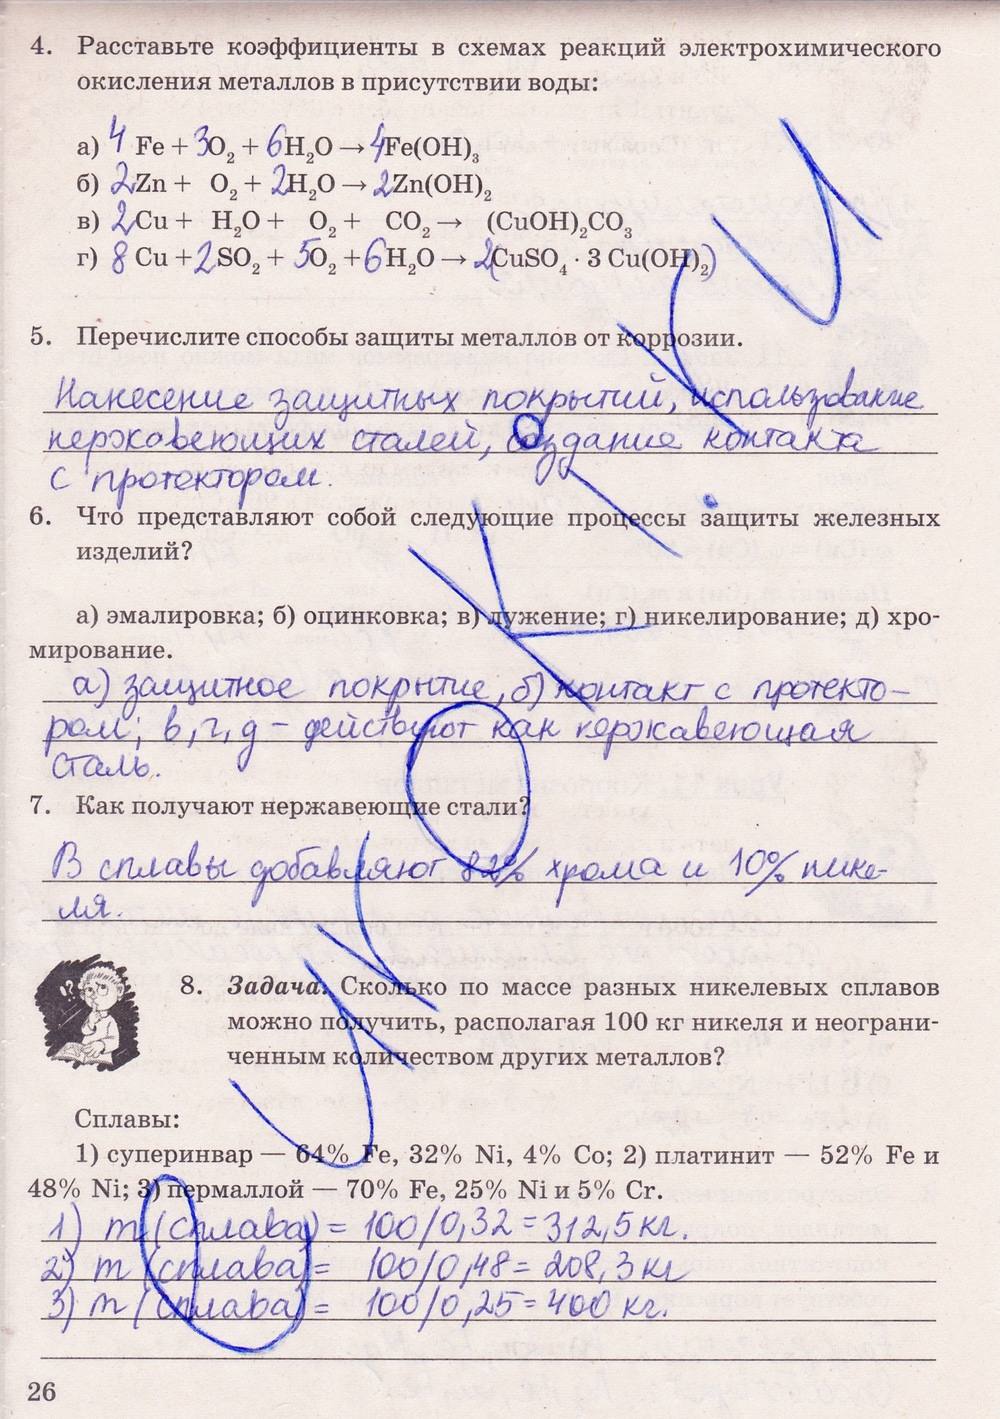 4. Расставьте коэффициенты в схемах реакций электрохимического
окисления металлов в присутствии воды:
а) 4 Fe + 3O₂ + 6H₂O → 4Fe(OH)₃
б) 2Zn + O₂ + 2H₂O → 2Zn(OH)₂
в) 2Cu + H₂O + O₂ + CO₂ → (CuOH)₂CO₃
г) 8 Cu + 2SO₂ + 5O₂ + 6H₂O → 2(CuSO₄ · 3 Cu(OH)₂)
5. Перечислите способы защиты металлов от коррозии.
Нанесение защитных покрытий, использование
нержавеющих сталей, создание контакта
с протектором.
6. Что представляют собой следующие процессы защиты железных
изделий?
а) эмалировка; б) оцинковка; в) лужение; г) никелирование; д) хро-
мирование.
а) защитное покрытие, б) контакт с протекто-
ром; в, г, д - действуют как нержавеющая
сталь.
7. Как получают нержавеющие стали?
В сплавы добавляют хрома и 10% нике-
ля.
8. Задача. Сколько по массе разных никелевых сплавов
можно получить, располагая 100 кг никеля и неограни-
ченным количеством других металлов?
Сплавы:
1) суперинвар — 64% Fe, 32% Ni, 4% Co; 2) платинит — 52% Fe и
48% Ni; 3) пермаллой — 70% Fe, 25% Ni и 5% Cr.
1) m (сплава) = 100/0,32 = 312,5 кг.
2) m (сплава) = 100/0,48 = 208,3 кг
3) m (сплава) = 100/0,25 = 400 кг.
26